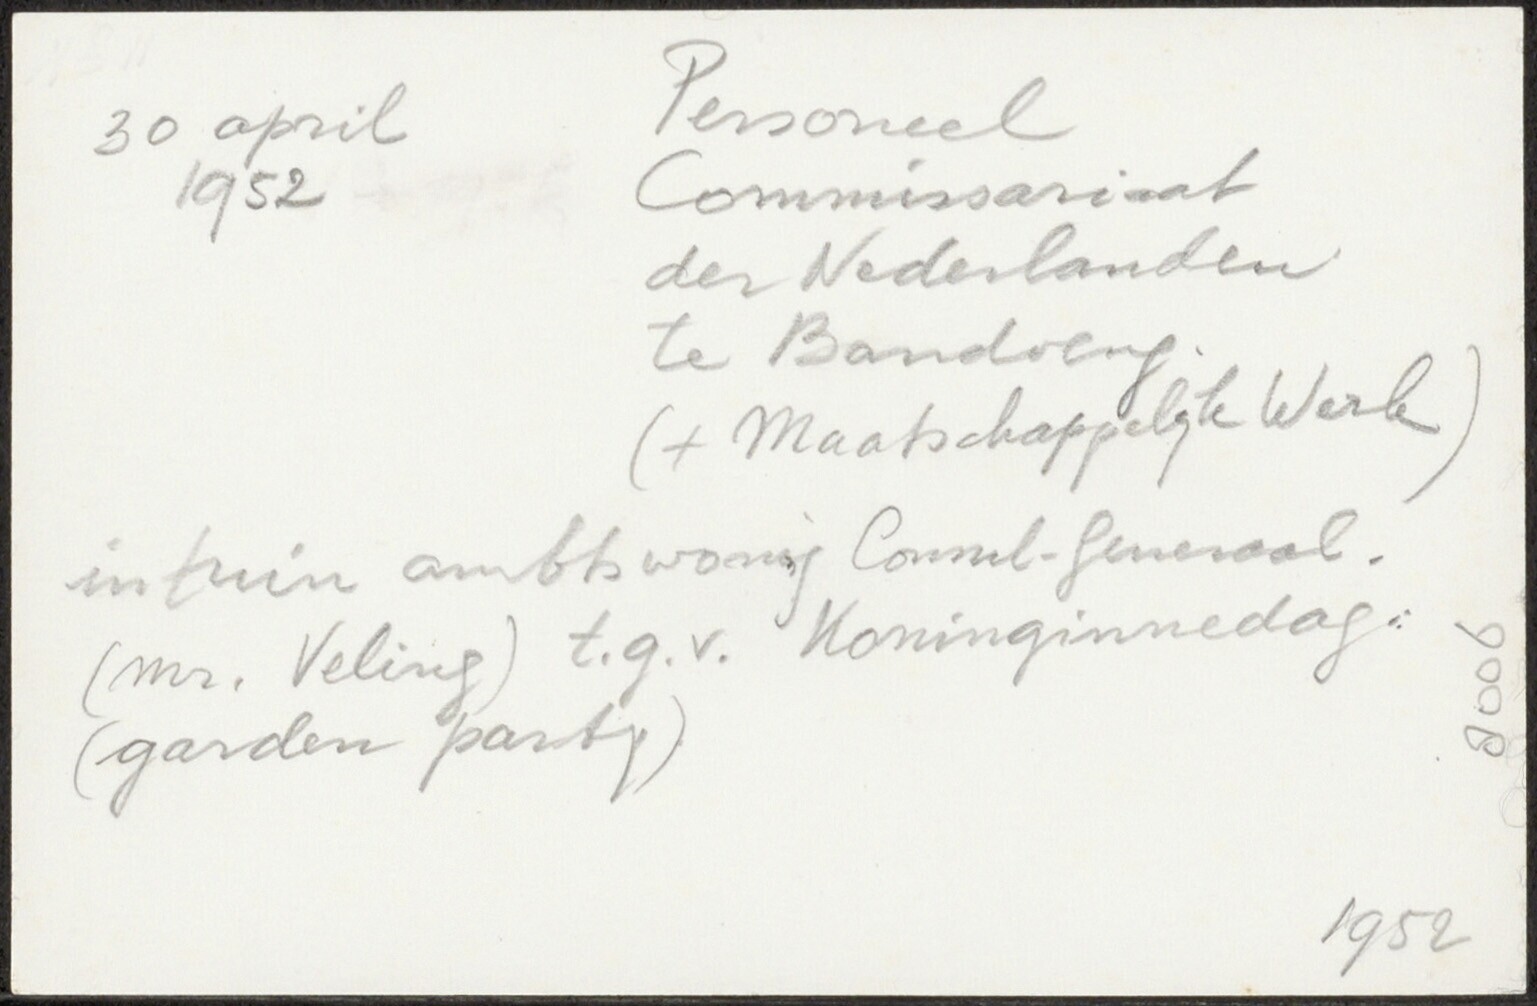 30 april
1952
Personeel
Commissariaat
der Nederlanden
te Bandoeng.
(+ Maatschappelijk Werk)
in tuin ambtswoning Consul-Generaal.
(mr. Veling) t.g.v. Koninginnedag.
(garden party)
9008
1952